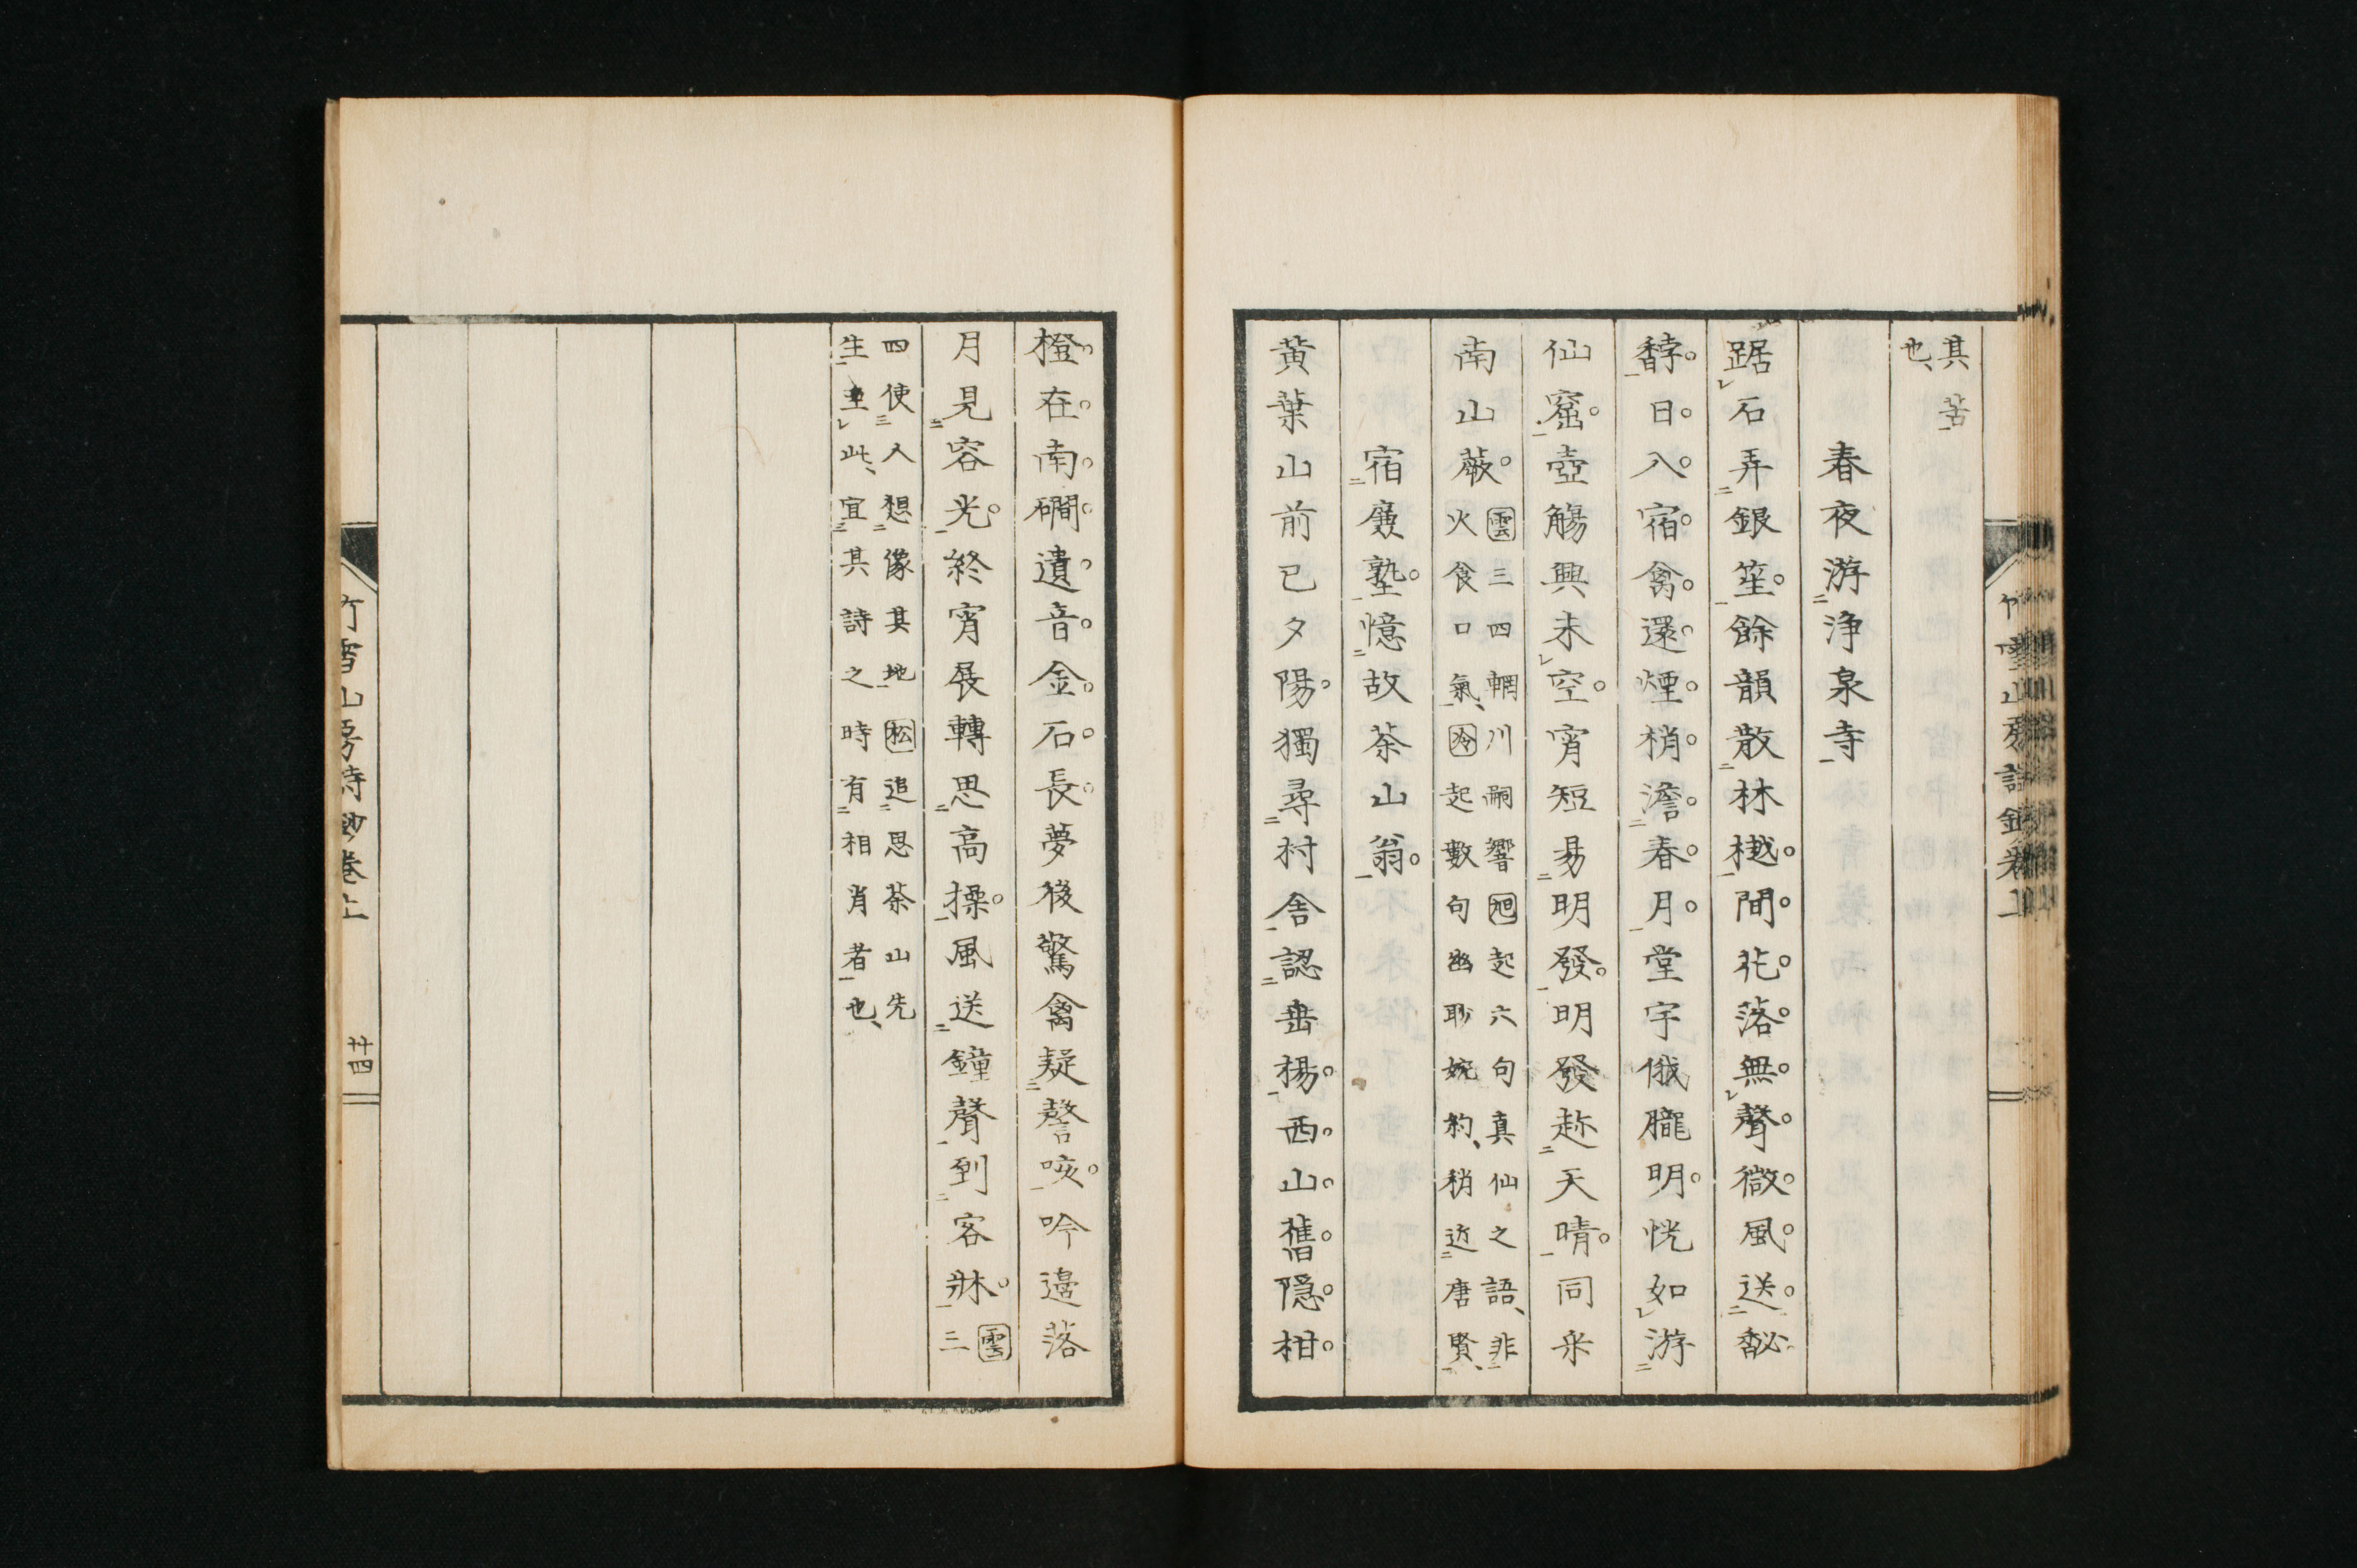 其苦
也、
春夜游浄泉寺
踞石弄銀笙。餘韻散林樾。間花落無聲。微風送馝
馞。日入宿禽還。煙梢澹春月。堂宇俄朧明。恍如游
仙窟。壺觴興未空。宵短易明發。明發趂天晴。同采
南山蕨。
雲三四輞川嗣響旭起六句真仙之語、非
火食口氣、冷起數句幽眇婉約、稍近唐賢、
宿廉塾。憶故茶山翁。
黃葉山前已夕陽。獨尋村舎認垂楊。西山舊隠柑
橙在。南磵遺音金石長。夢後驚禽疑謦咳。吟邊落
月見容光。終宵展轉思高操。風送鐘聲到客牀。雲三
四使人想像其地松追思茶山先
生至此、宜其詩之時有相肖者也、
竹雪山房詩鈔卷上
竹雪山房詩鈔卷上
廿四